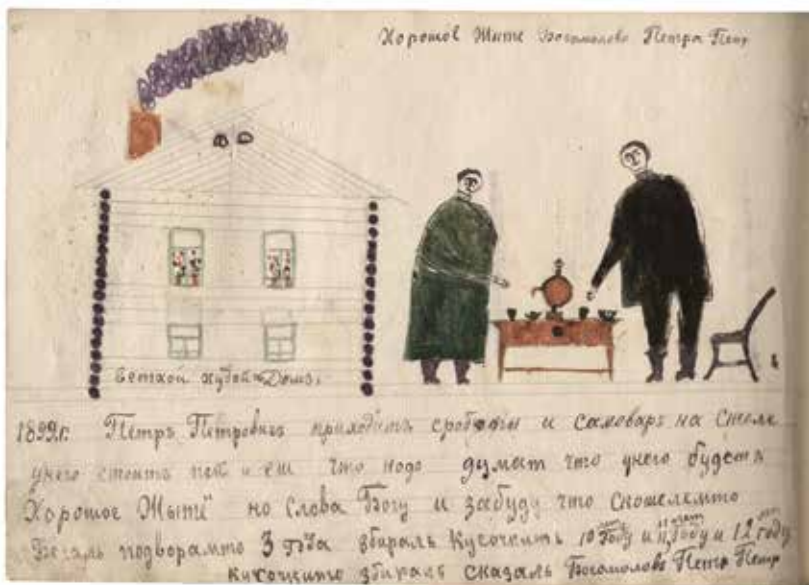 Хорошое Жыте Богомолово Петра Петр
ветхой худой Домъ.
1899г. Петръ Петровичъ приходитъ сроботы и самоваръ на столе
унего стоитъ пей и еш что надо думат что унего будетъ
"Хорошое Жыти" но слова Богу и забуду что Скошелемто
Бегалъ подворамто 3 года збиралъ Кусочкитъ 10 году и 11 году и 12 году
кусочкито збиралъ сказалъ Богомолово Петръ Петр